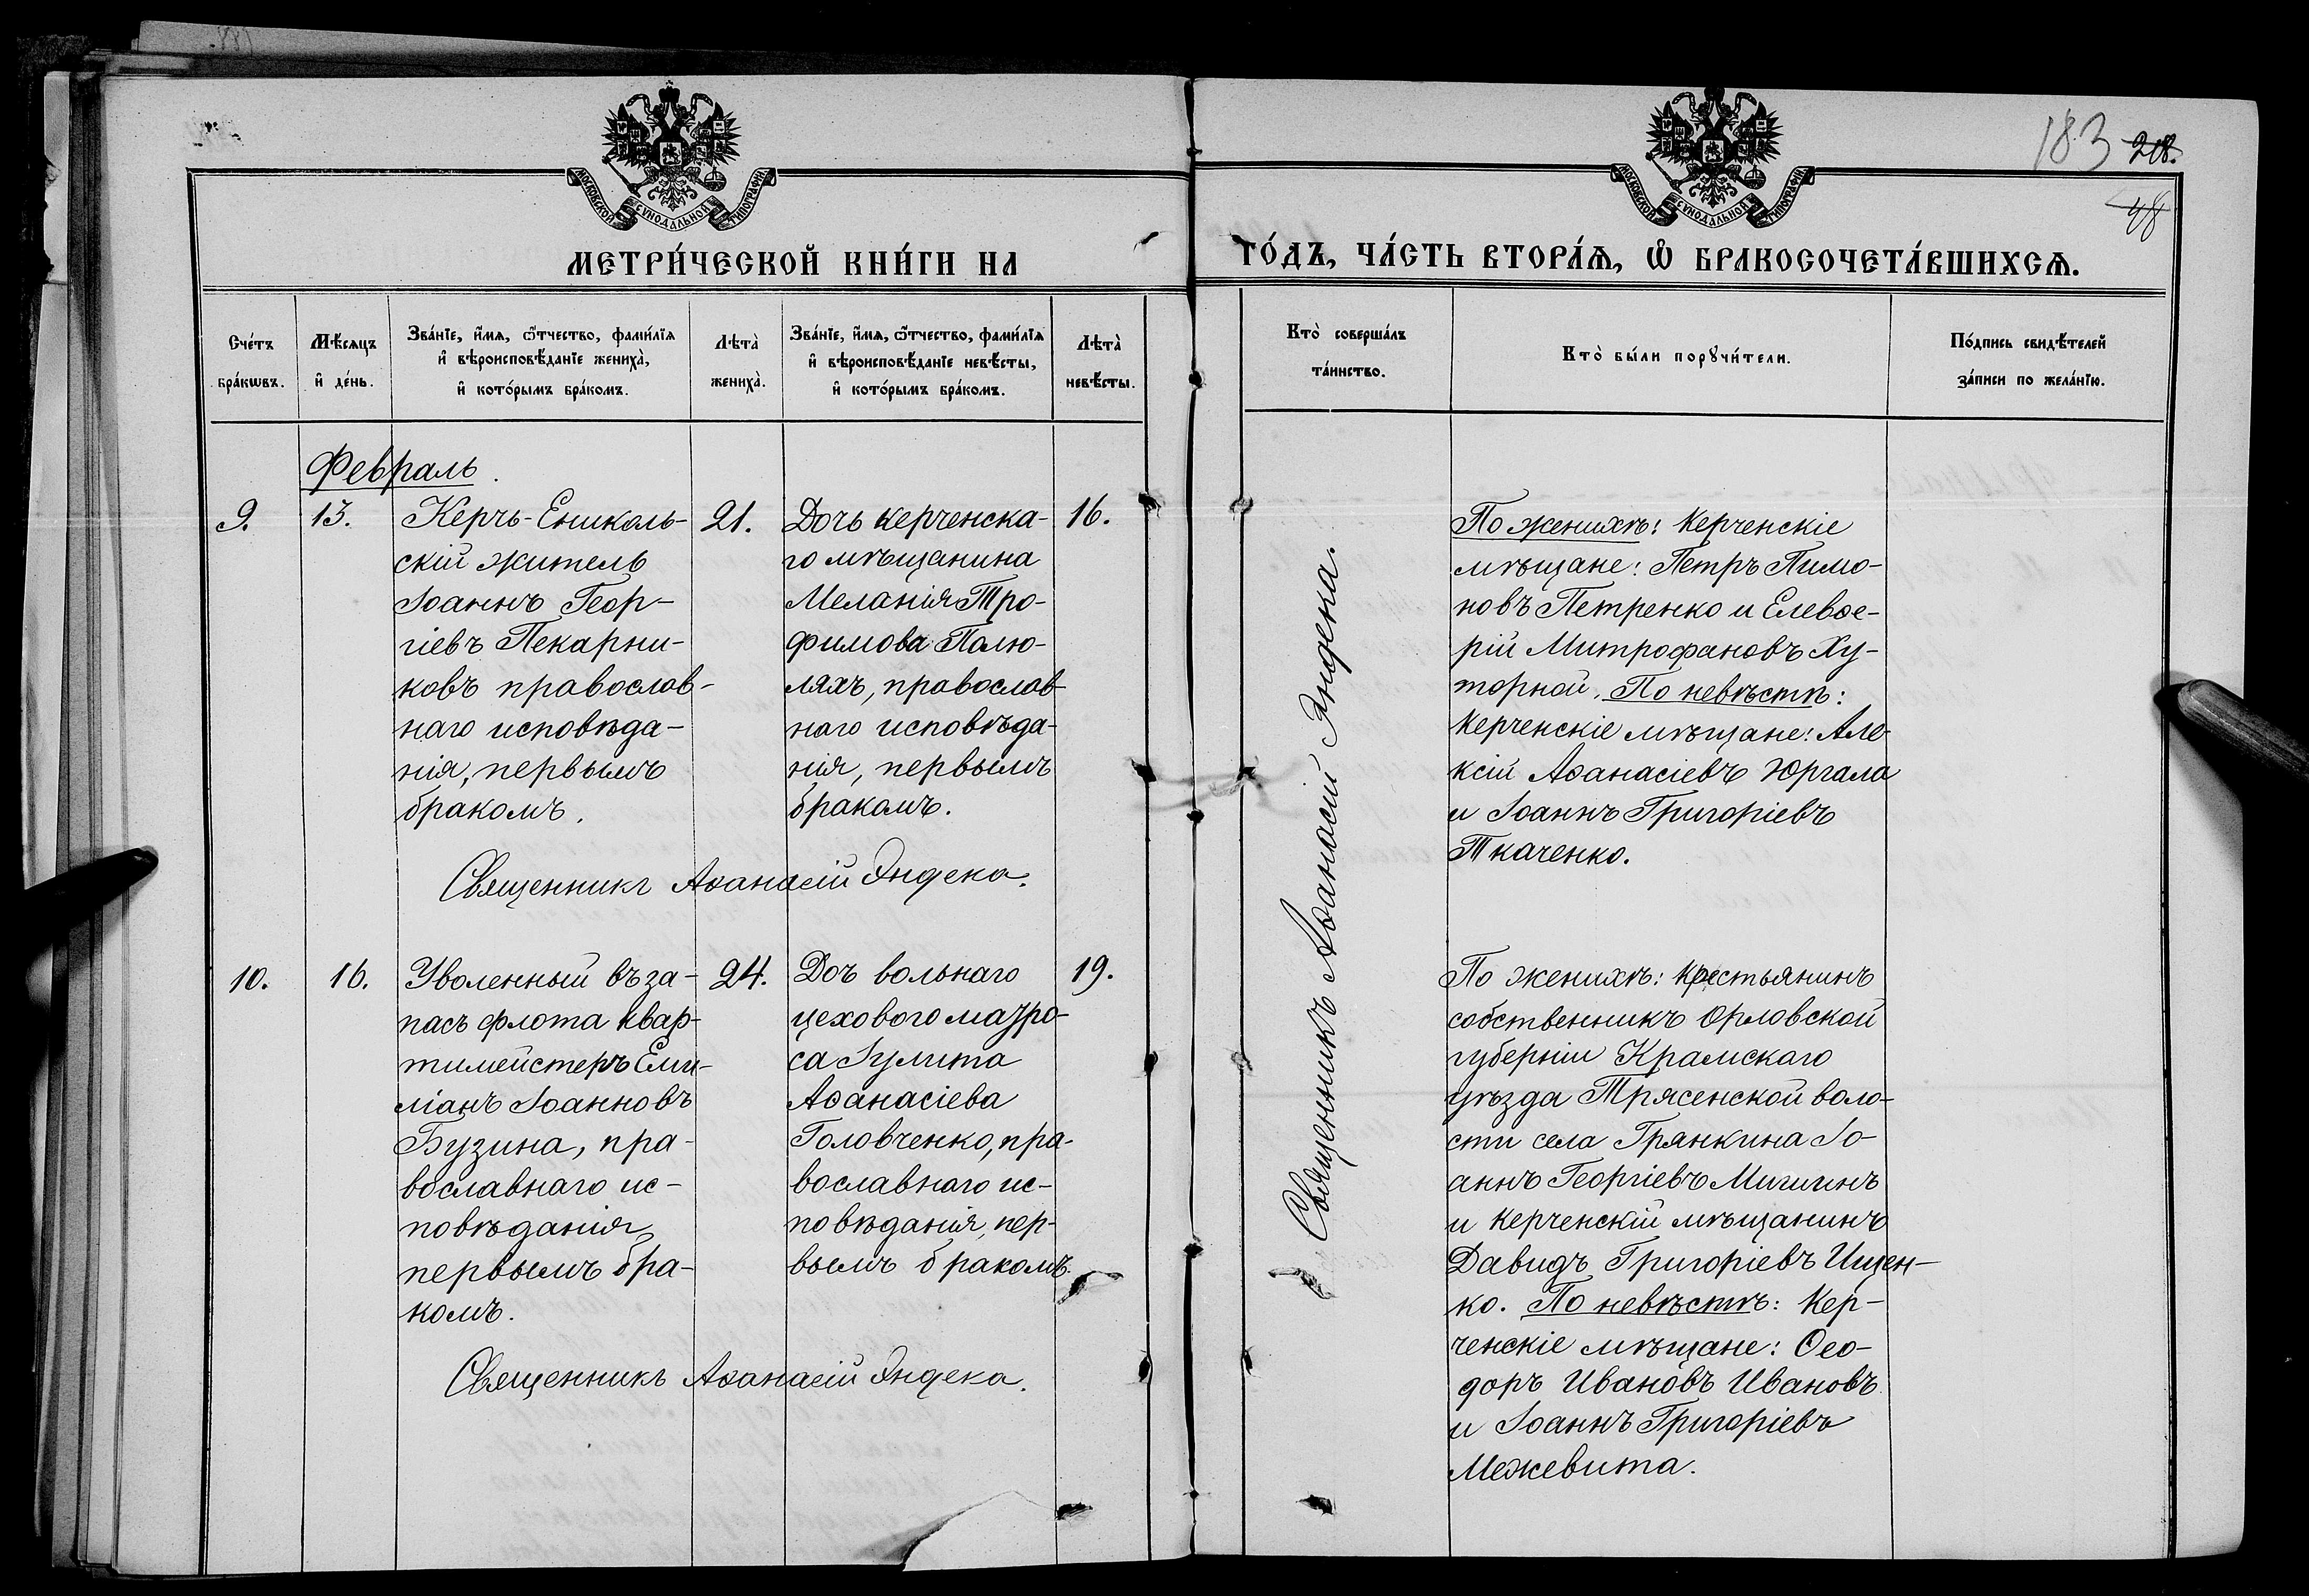 183 218.
48
МОСКОВСКОЙ СѴНОДАЛЬНОЙ ТИПОГРАФІИ
МОСКОВСКОЙ СѴНОДАЛЬНОЙ ТИПОГРАФІИ
МЕТРИ́ЧЕСКОЙ КНИ́ГИ НА
ГО́ДЪ, ЧА́СТЬ ВТОРА́Ѧ, Ѽ БРАКОСОЧЕТА́ВШИХСѦ.
Сче́тъ
бра́кѡвъ.
Мѣ́сяцъ
и҆ де́нь.
Зва́нїе, и҆́мѧ, ѻ҆́тчество, фами́лїѧ
и҆ вѣроисповѣ́данїе жениха̀,
и҆ кото́рымъ бра́комъ.
Лѣта̀
жениха̀.
Зва́нїе, и҆́мѧ, ѻ҆́тчество, фами́лїѧ
и҆ вѣроисповѣ́данїе невѣ́сты,
и҆ кото́рымъ бра́комъ.
Лѣта̀
невѣ́сты.
Кто̀ соверша́лъ
та́инство.
Кто̀ бы́ли порꙋчи́тели.
По́дпись свидѣ́телей
за́писи по жела́нїю.
Февраль.
9.
13.
Керчь-Ениколь-
скій житель
Іоаннъ Геор-
гіевъ Пекарни-
ковъ православ-
наго исповѣда-
нія, первымъ
бракомъ.
21.
Дочь керченска-
го мѣщанина
Меланія Тро-
фимова Палю-
ляхъ, православ-
наго исповѣда-
нія, первымъ
бракомъ.
16.
Священникъ Аѳанасій Яндека.
По женихѣ: Керченскіе
мѣщане: Петръ Пимо-
новъ Петренко и Елевѳе-
рій Митрофановъ Ху-
торной. По невѣстѣ:
Керченскіе мѣщане: Але-
ксій Аѳанасіевъ Юргала
и Іоаннъ Григоріевъ
Ткаченко.
Священникъ Аѳанасій Яндека.
10.
16.
Уволенный въ за-
пасъ флота квар-
тимейстеръ Еми-
ліанъ Іоанновъ
Бузина, пра-
вославнаго ис-
повѣданія
первымъ бра-
комъ.
24.
Доч вольнаго
цехового матро-
са Іулита
Аѳанасіева
Головченко, пра-
вославнаго ис-
повѣданія, пер-
вымъ бракомъ.
19.
Священникъ Аѳанасій Яндека.
По женихѣ: крестьянинъ
собственникъ Орловской
губерніи Крамскаго
уѣзда Трясенской воло-
сти села Грянкина Іо-
аннъ Георгіевъ Мишинъ
и Керченскій мѣщанинъ
Давидъ Григоріевъ Ищен-
ко. По невѣстѣ: Кер-
ченскіе мѣщане: Ѳео-
доръ Ивановъ Ивановъ
и Іоаннъ Григоріевъ
Межевита.